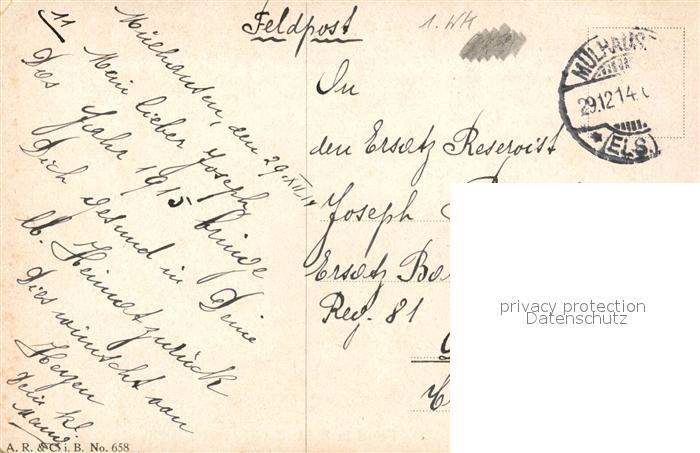 11
Mülhausen, den 29.XII.14
Mein lieber Joseph,
Das Jahr 1915 bringe
Dich gesund in Deine
lb. Heimat zurück
Dies wünscht von
Herzen
Dein kl.
Feldpost
1. WK
MÜLHAUS
29.12.14.
* (ELS.)
An
den Ersatz Reservist
Joseph
Ersatz
Reg. 81
privacy protection
Datenschutz
A. R. & C. i. B. No. 658